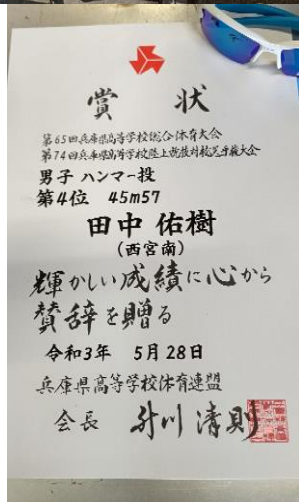 賞状
第65回兵庫県高等学校総合体育大会
第74回兵庫県高等学校陸上競技対校選手権大会
男子 ハンマー投
第4位 45m57
田中 佑樹
(西宮南)
輝かしい成績に心から
賛辞を贈る
令和3年 5月28日
兵庫県高等学校体育連盟
会長 升川清則